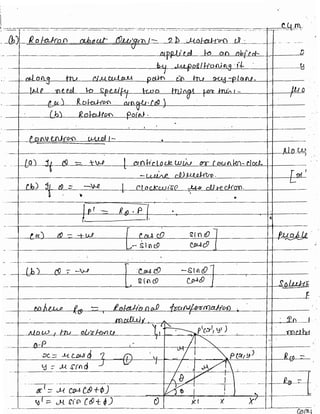 (b) Rotation about Origin:- 2D rotation is
applied to an object
by repositioning it
along the circular path in the xy-plane.
We need to specify two things for this:-
(a) Rotation angle (θ)
(b) Rotation point.
Convention used:-
(a) If θ = +ve | anticlockwise or counter-clock
-wise direction.
(b) If θ = -ve | clockwise direction.
P' = Rθ . P
(a) θ = +ve [ cosθ sinθ
-sinθ cosθ ]
(b) θ = -ve [ cosθ -sinθ
sinθ cosθ ]
where Rθ = Rotational transformation
matrix.
Now, the distance
o-P
x = r cosϕ } ①
y = r sinϕ
x' = r cos(θ+ϕ)
y' = r sin(θ+ϕ)
y'
P'(x',y')
y
P(x,y)
r
r
θ
O x1 x X
Now,
Solution
In
Rθ =
Rθ =